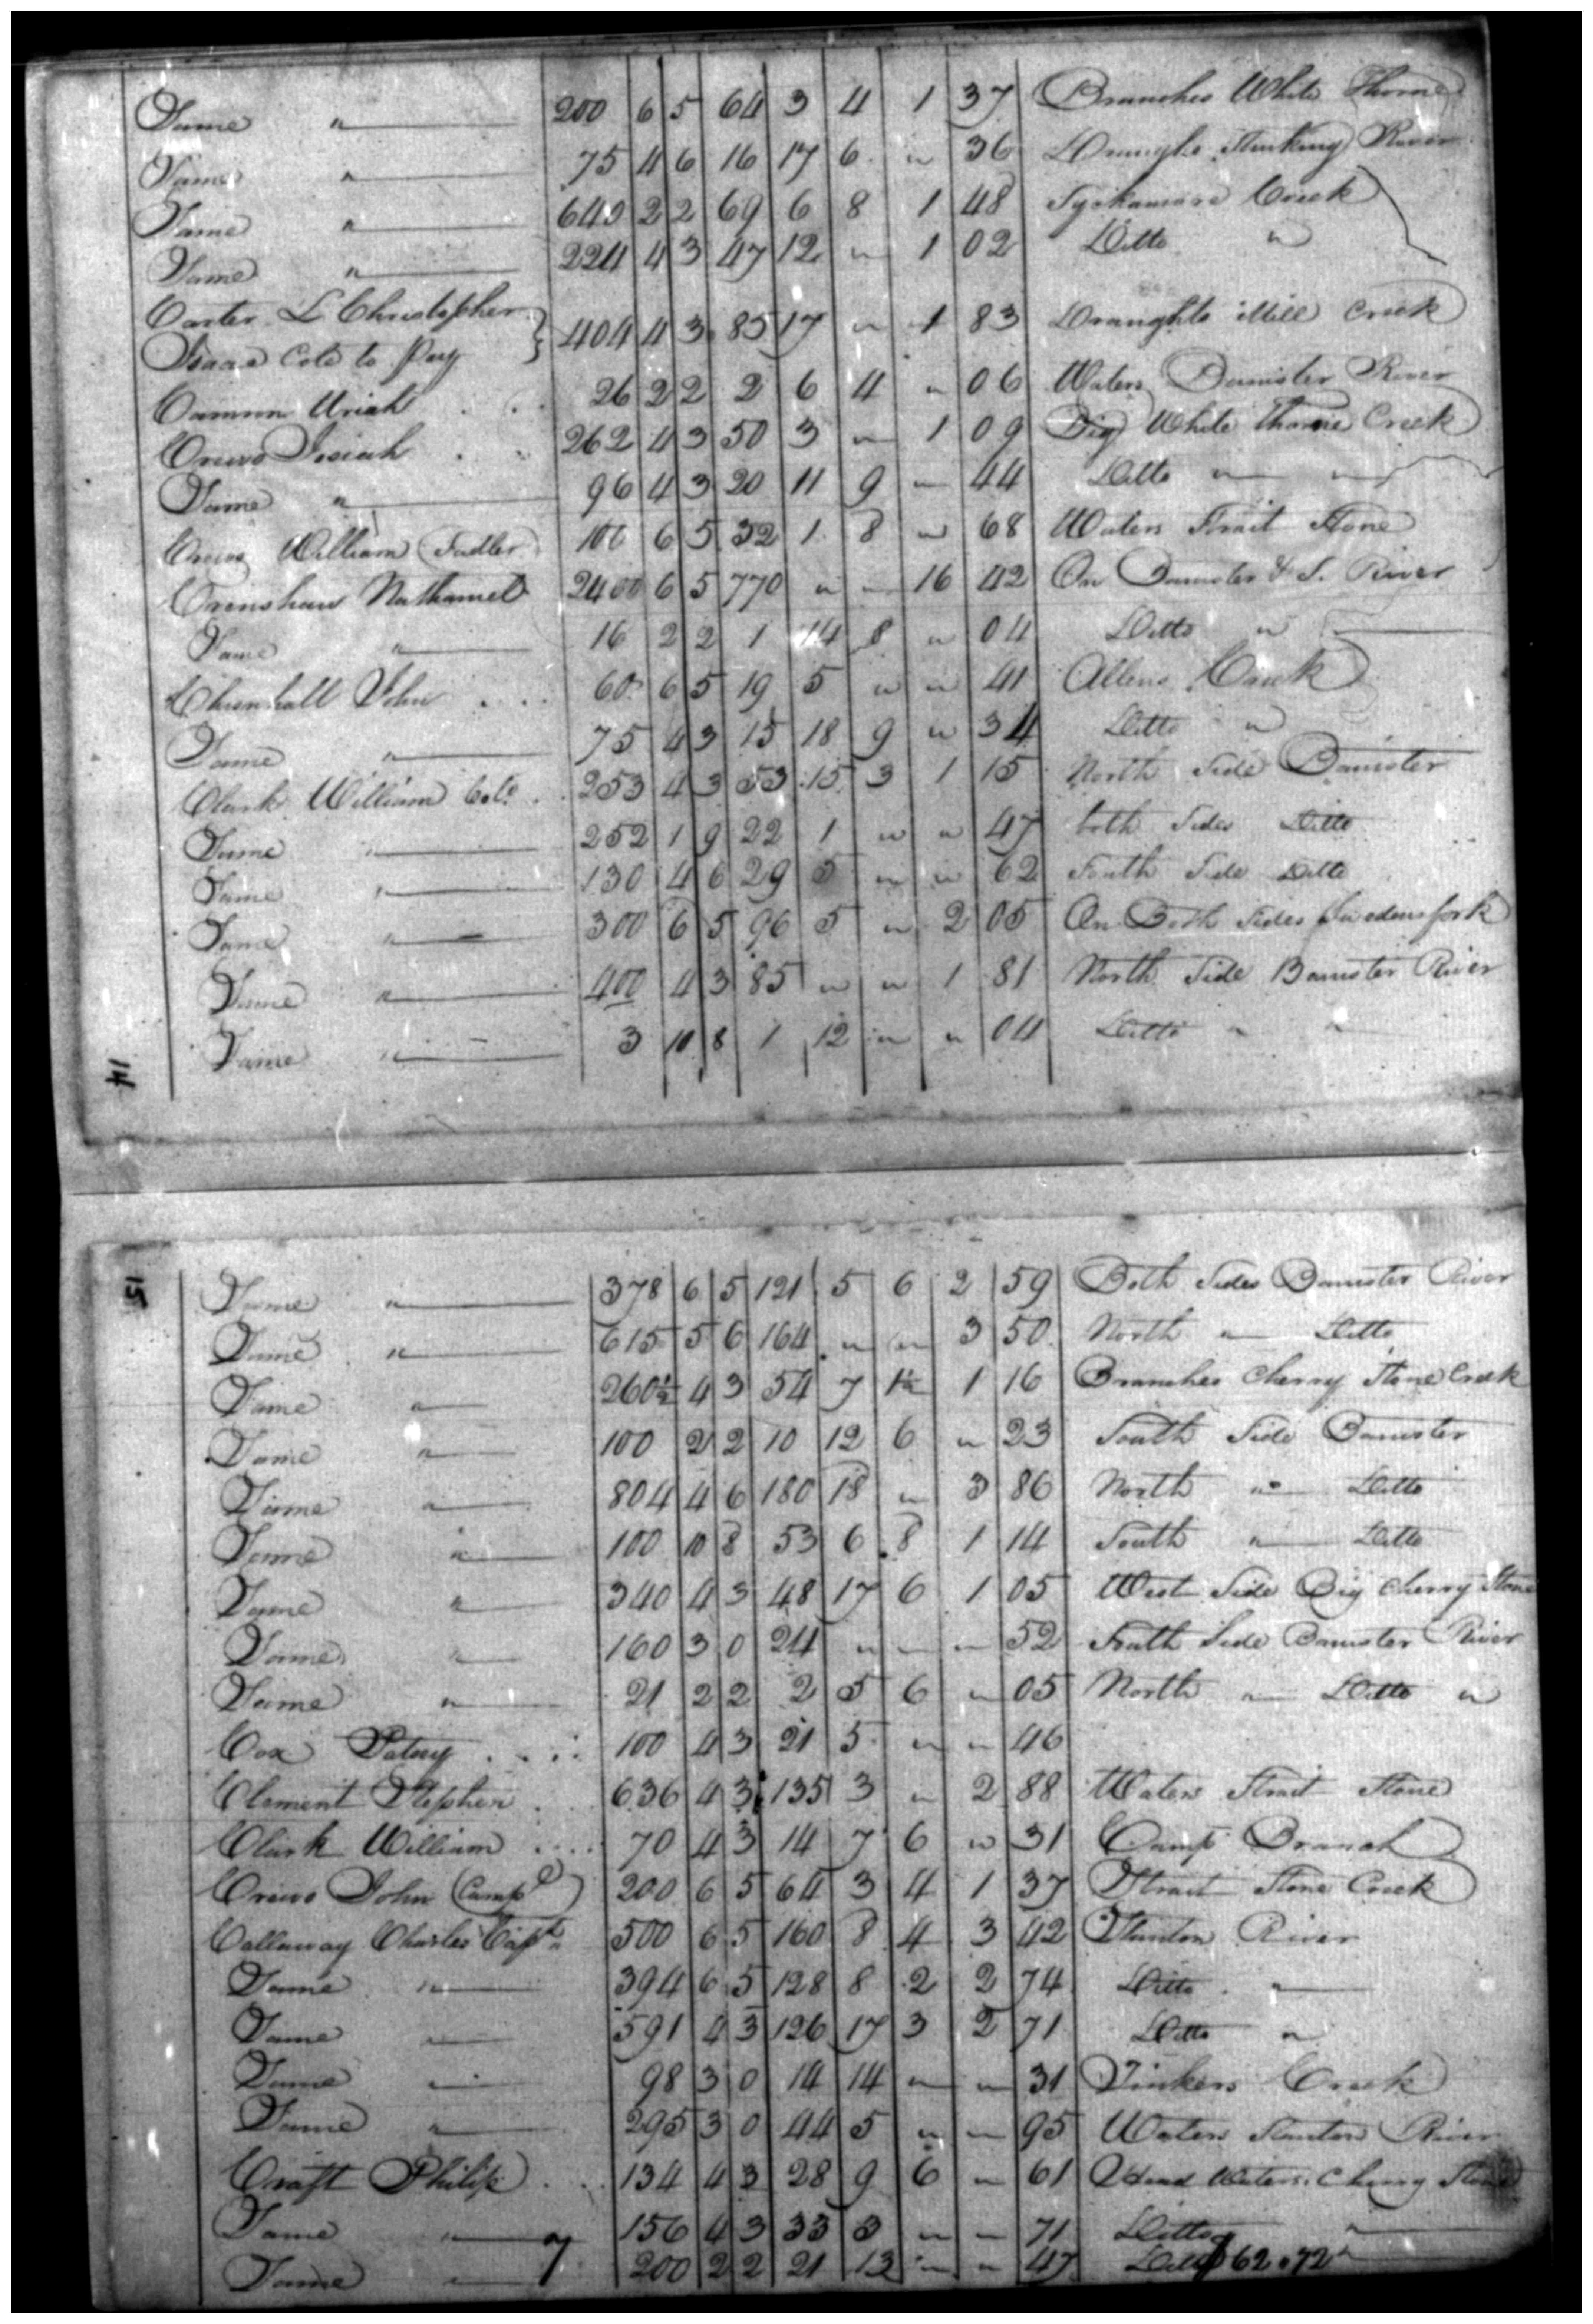 Same " 200 6 5 64 3 4 1 37 Branches White Thorne
Same " 75 4 6 16 17 6 " 36 Draughts Stinking River
Same " 640 2 2 69 6 8 1 48 Syckamore Creek
Same " 224 4 3 47 12 " 1 02 Ditto "
Carter L Christopher
Isaac Cole to Pay } 404 4 3 85 17 " 1 83 Draughts Mill Creek
Cammon Uriah 26 2 2 2 6 4 " 06 Waters Banister River
Crews Josiah 262 4 3 50 3 " 1 09 Big White Thorne Creek
Same " 96 4 3 20 11 9 " 44 Ditto " "
Crews William (Sadler) 100 6 5 32 1 8 " 68 Waters Strait Stone
Crenshaw Nathaniel 2400 6 5 770 " " 16 42 On Banister & S. River
Same " 16 2 2 1 14 8 " 04 Ditto "
John 60 6 5 19 5 " " 41 Allens Creek
Same " 75 4 3 15 18 9 " 34 Ditto "
Clark William Colo. 253 4 3 53 15 3 1 15 North Side Banister
Same " 252 1 9 22 1 " " 47 both Sides Ditto
Same " 130 4 6 29 5 " " 62 South Side Ditto
Same " 300 6 5 96 5 " 2 05 On Both Sides
Same " 400 4 3 85 " " 1 81 North Side Banister River
Same " 3 10 8 1 12 " " 04 Ditto " "
14
15
Same " 378 6 5 121 5 6 2 59 Both Sides Banister River
Same " 615 5 6 164 " " 3 50 North " Ditto
Same " 260½ 4 3 54 7 1½ 1 16 Branches Cherry Stone Creek
Same " 100 2 2 10 12 6 " 23 South Side Banister
Same " 804 4 6 180 18 " 3 86 North " Ditto
Same " 100 10 8 53 6 8 1 14 South " Ditto
Same " 340 4 3 48 17 6 1 05 West Side Big Cherry Stone
Same " 160 3 0 24 " " " 52 South Side Banister River
Same " 21 2 2 2 5 6 " 05 North " Ditto "
Cox Patsy 100 4 3 21 5 " " 46
Clement Stephen 636 4 3 135 3 " 2 88 Waters Strait Stone
Clark William 70 4 3 14 7 6 " 31 Camp Branch
Crews John (Campl) 200 6 5 64 3 4 1 37 Strait Stone Creek
Callaway Charles Capt. 500 6 5 160 8 4 3 42 Stanton River
Same " 394 6 5 128 8 2 2 74 Ditto "
Same " 591 4 3 126 17 3 2 71 Ditto "
Same " 98 3 0 14 14 " " 31 Tinkers Creek
Same " 295 3 0 44 5 " " 95 Waters Stanton River
Craft Philip 134 4 3 28 9 6 " 61 Head Waters Cherry Stone
Same " 156 4 3 33 3 " " 71 Ditto "
Same " 7 200 2 2 21 13 " " 47 Ditto 62.72